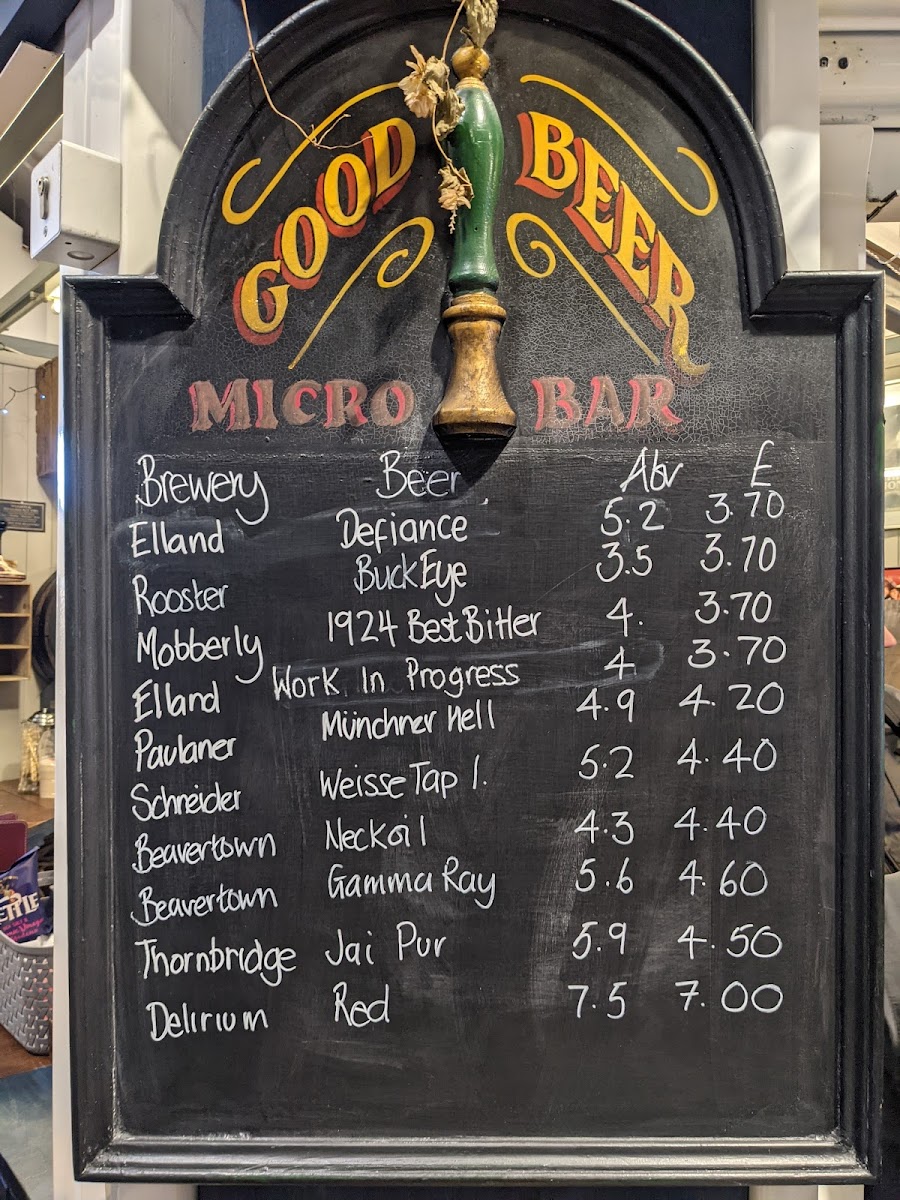 GOOD BEER
MICRO BAR
Brewery Beer Abv £
Elland Defiance 5.2 3.70
Rooster BuckEye 3.5 3.70
Mobberly 1924 Best Bitter 4. 3.70
Elland Work In Progress 4 3.70
Paulaner Münchner Hell 4.9 4.20
Schneider Weisse Tap 1. 5.2 4.40
Beavertown Neckoil 4.3 4.40
Beavertown Gamma Ray 5.6 4.60
Thornbridge Jai Pur 5.9 4.50
Delirium Red 7.5 7.00